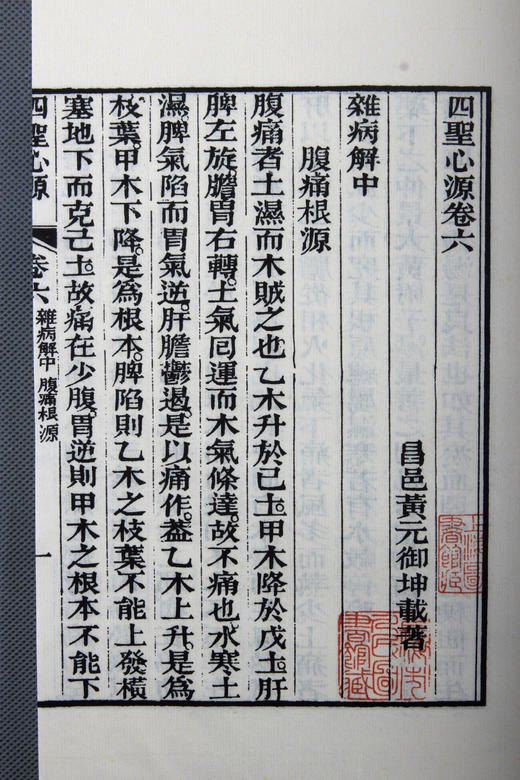 四聖心源卷六
昌邑黃元御坤載著
雜病解中
腹痛根源
腹痛者土濕而木賊之也乙木升於己土。甲木降於戊土。肝
脾左旋。膽胃右轉。土氣回運而木氣條達。故不痛也水寒土
濕。脾氣陷而胃氣逆。肝膽鬱遏。是以痛作。葢乙木上升。是爲
枝葉。甲木下降。是爲根本。脾陷則乙木之枝葉不能上發橫
塞地下而克己土。故痛在少腹。胃逆則甲木之根本不能下
四聖心源 卷六 雜病解中 腹痛根源 一